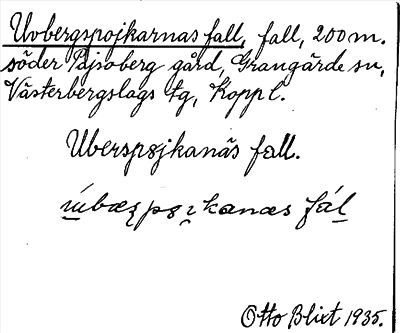 Uvbergspojkarnas fall, fall, 200 m.
söder Pajsoberg gård, Grangärde sn,
Västerbergslags tg, Kopp l.
Uberspøjkanäs fall.
kanæs fál
Otto Blixt 1935.